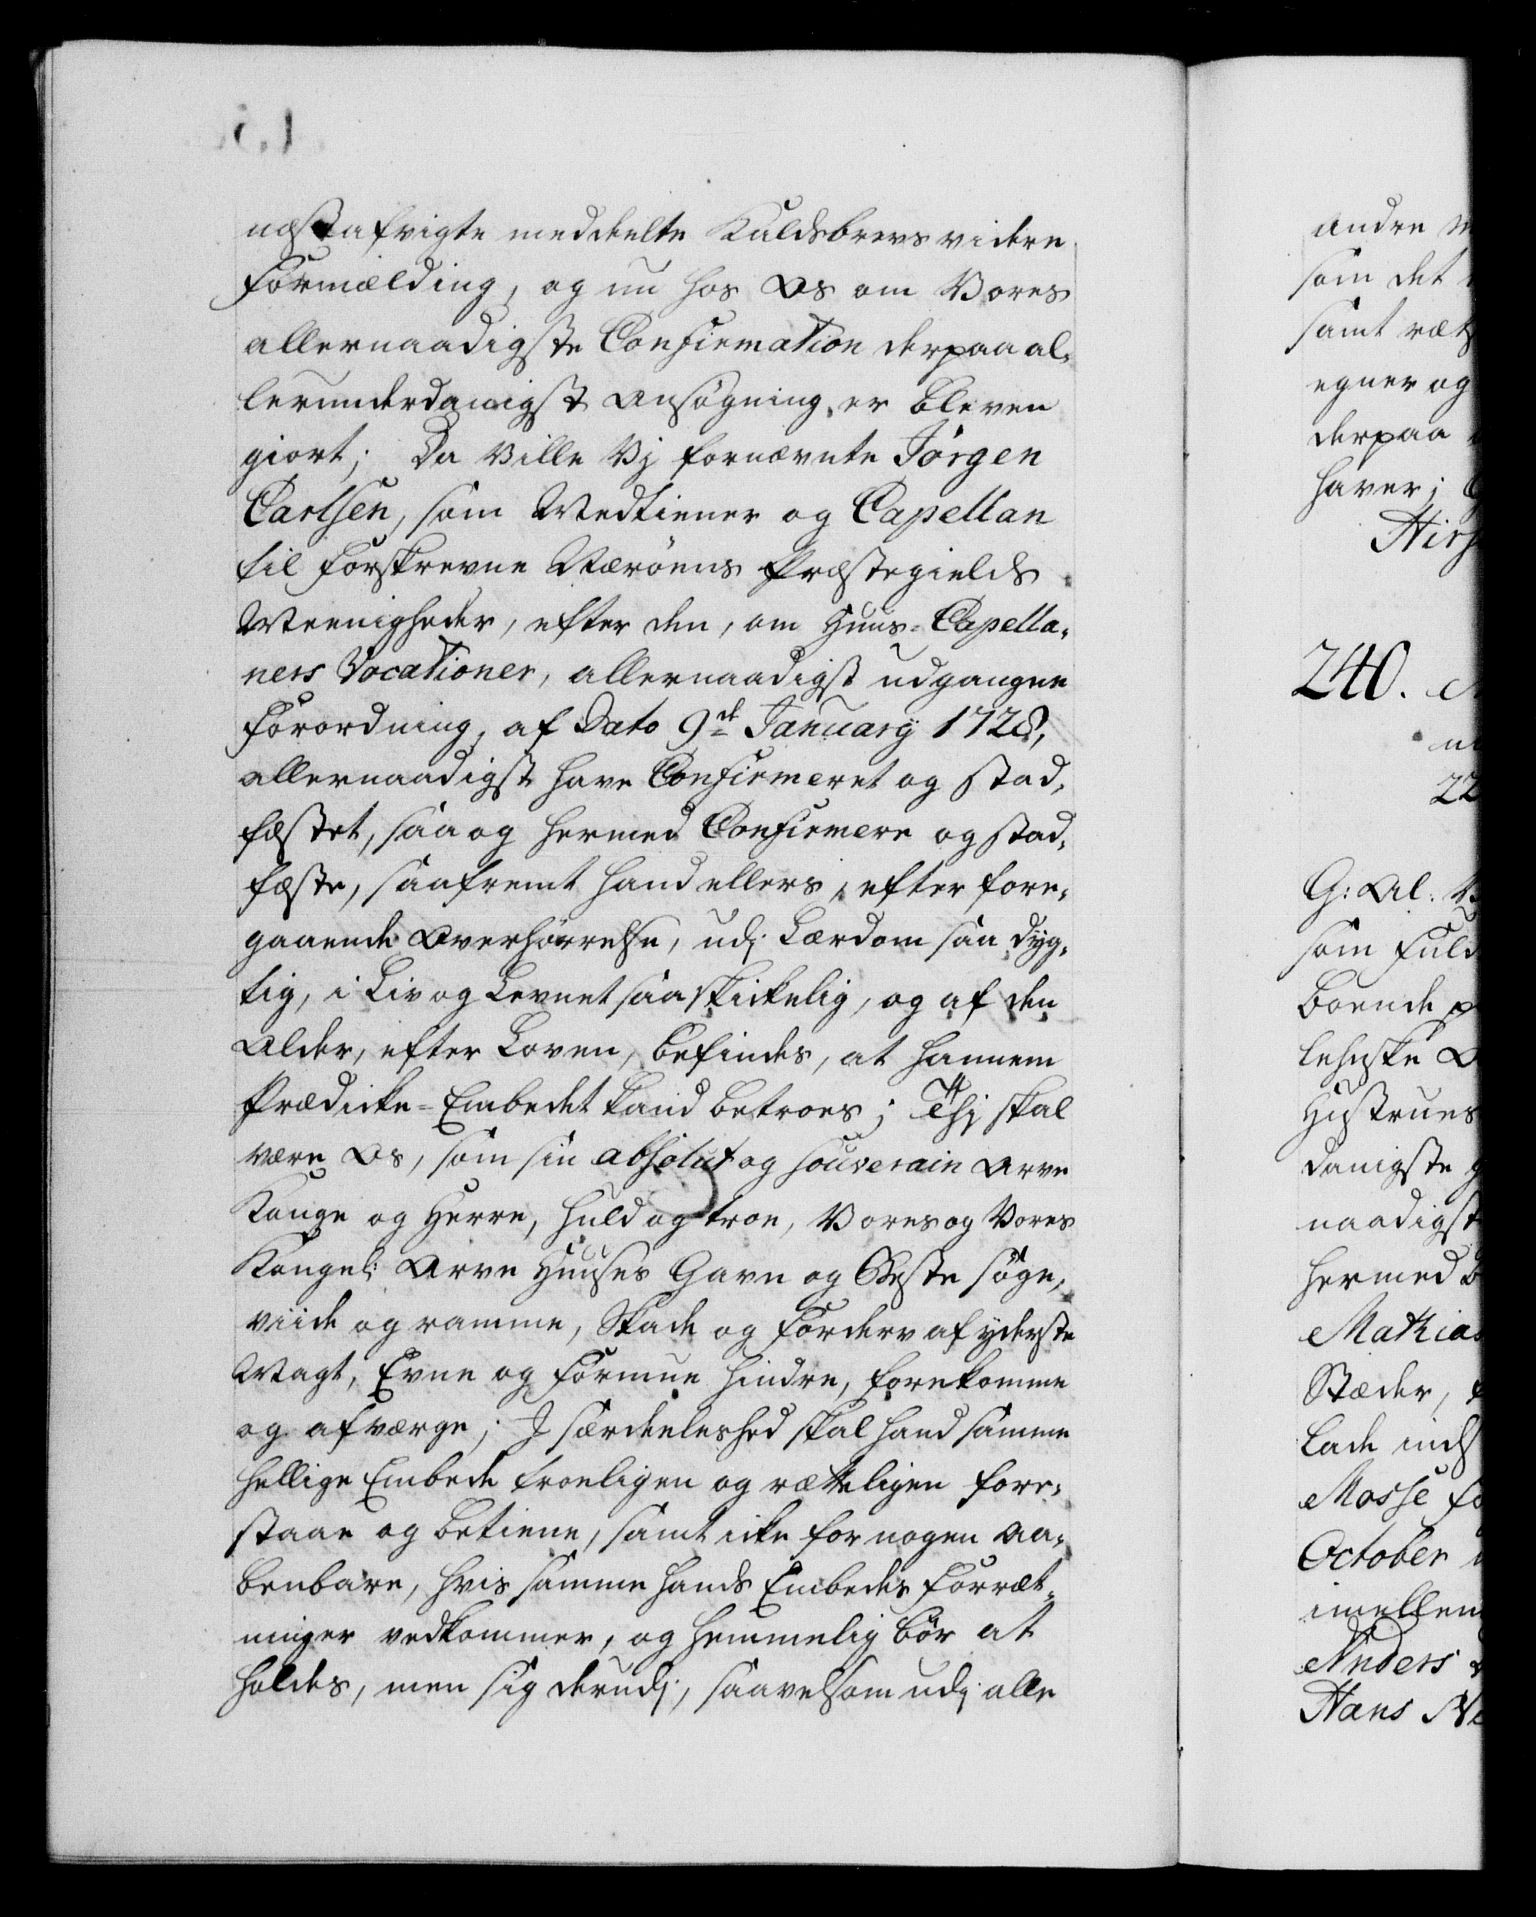 næstafvigte meddeelte Kaldsbrevs videre
Formælding, og nu hos Os om Vores
allernaadigste Confirmation derpaa al-
lerunderdanigst Ansøgning er bleven
giort; Da Ville Vj fornævnte Jörgen
Carlsen, som Medtiener og Capellan
til forskrevne Nærøens Præstegields
Meenigheder, efter den, om Huus-Capella-
ners Vocationer, allernaadigst udgangne
Forordning, af Dato 9de January 1728,
allernaadigst have Confirmeret og stad-
fæstet, saa og hermed Confirmere og stad-
fæste, saafremt hand ellers, efter fore-
gaaende Overhørrelse, udj Lærdom saa dyg-
tig, i Liv og Levnet saa skickelig, og af den
Alder, efter Loven, befindes, at hannem
Prædicke-Embedet kand betroes; Thj skal
være Os, som sin absolut og souverain Arve
Konge og Herre, huld og troe, Vores og Vores
Kongel: Arve Huuses Gavn og Beste søge,
viide og ramme, Skade og Forderv af yderste
Magt, Evne og Formue hindre, forekomme
og afværge; I særdeeleshed skal hand samme
hellige Embede troeligen og rætteligen fore-
staae og betiene, samt icke for nogen aa-
benbare, hvis samme hands Embedes Forræt-
ninger vedkommer, og hemmelig bør at
holdes, men sig derudj, saavelsom udj alle
andre
som det
samt ræt
egner og
derpaa
haver;
240.
22
G: Al: V
som Fuld
boende p
lehnske
Hustrues
danigste
naadigst
hermed
Mathias
Stæder,
lade ind
Mosse fo
October
imellem
Anders
Hans